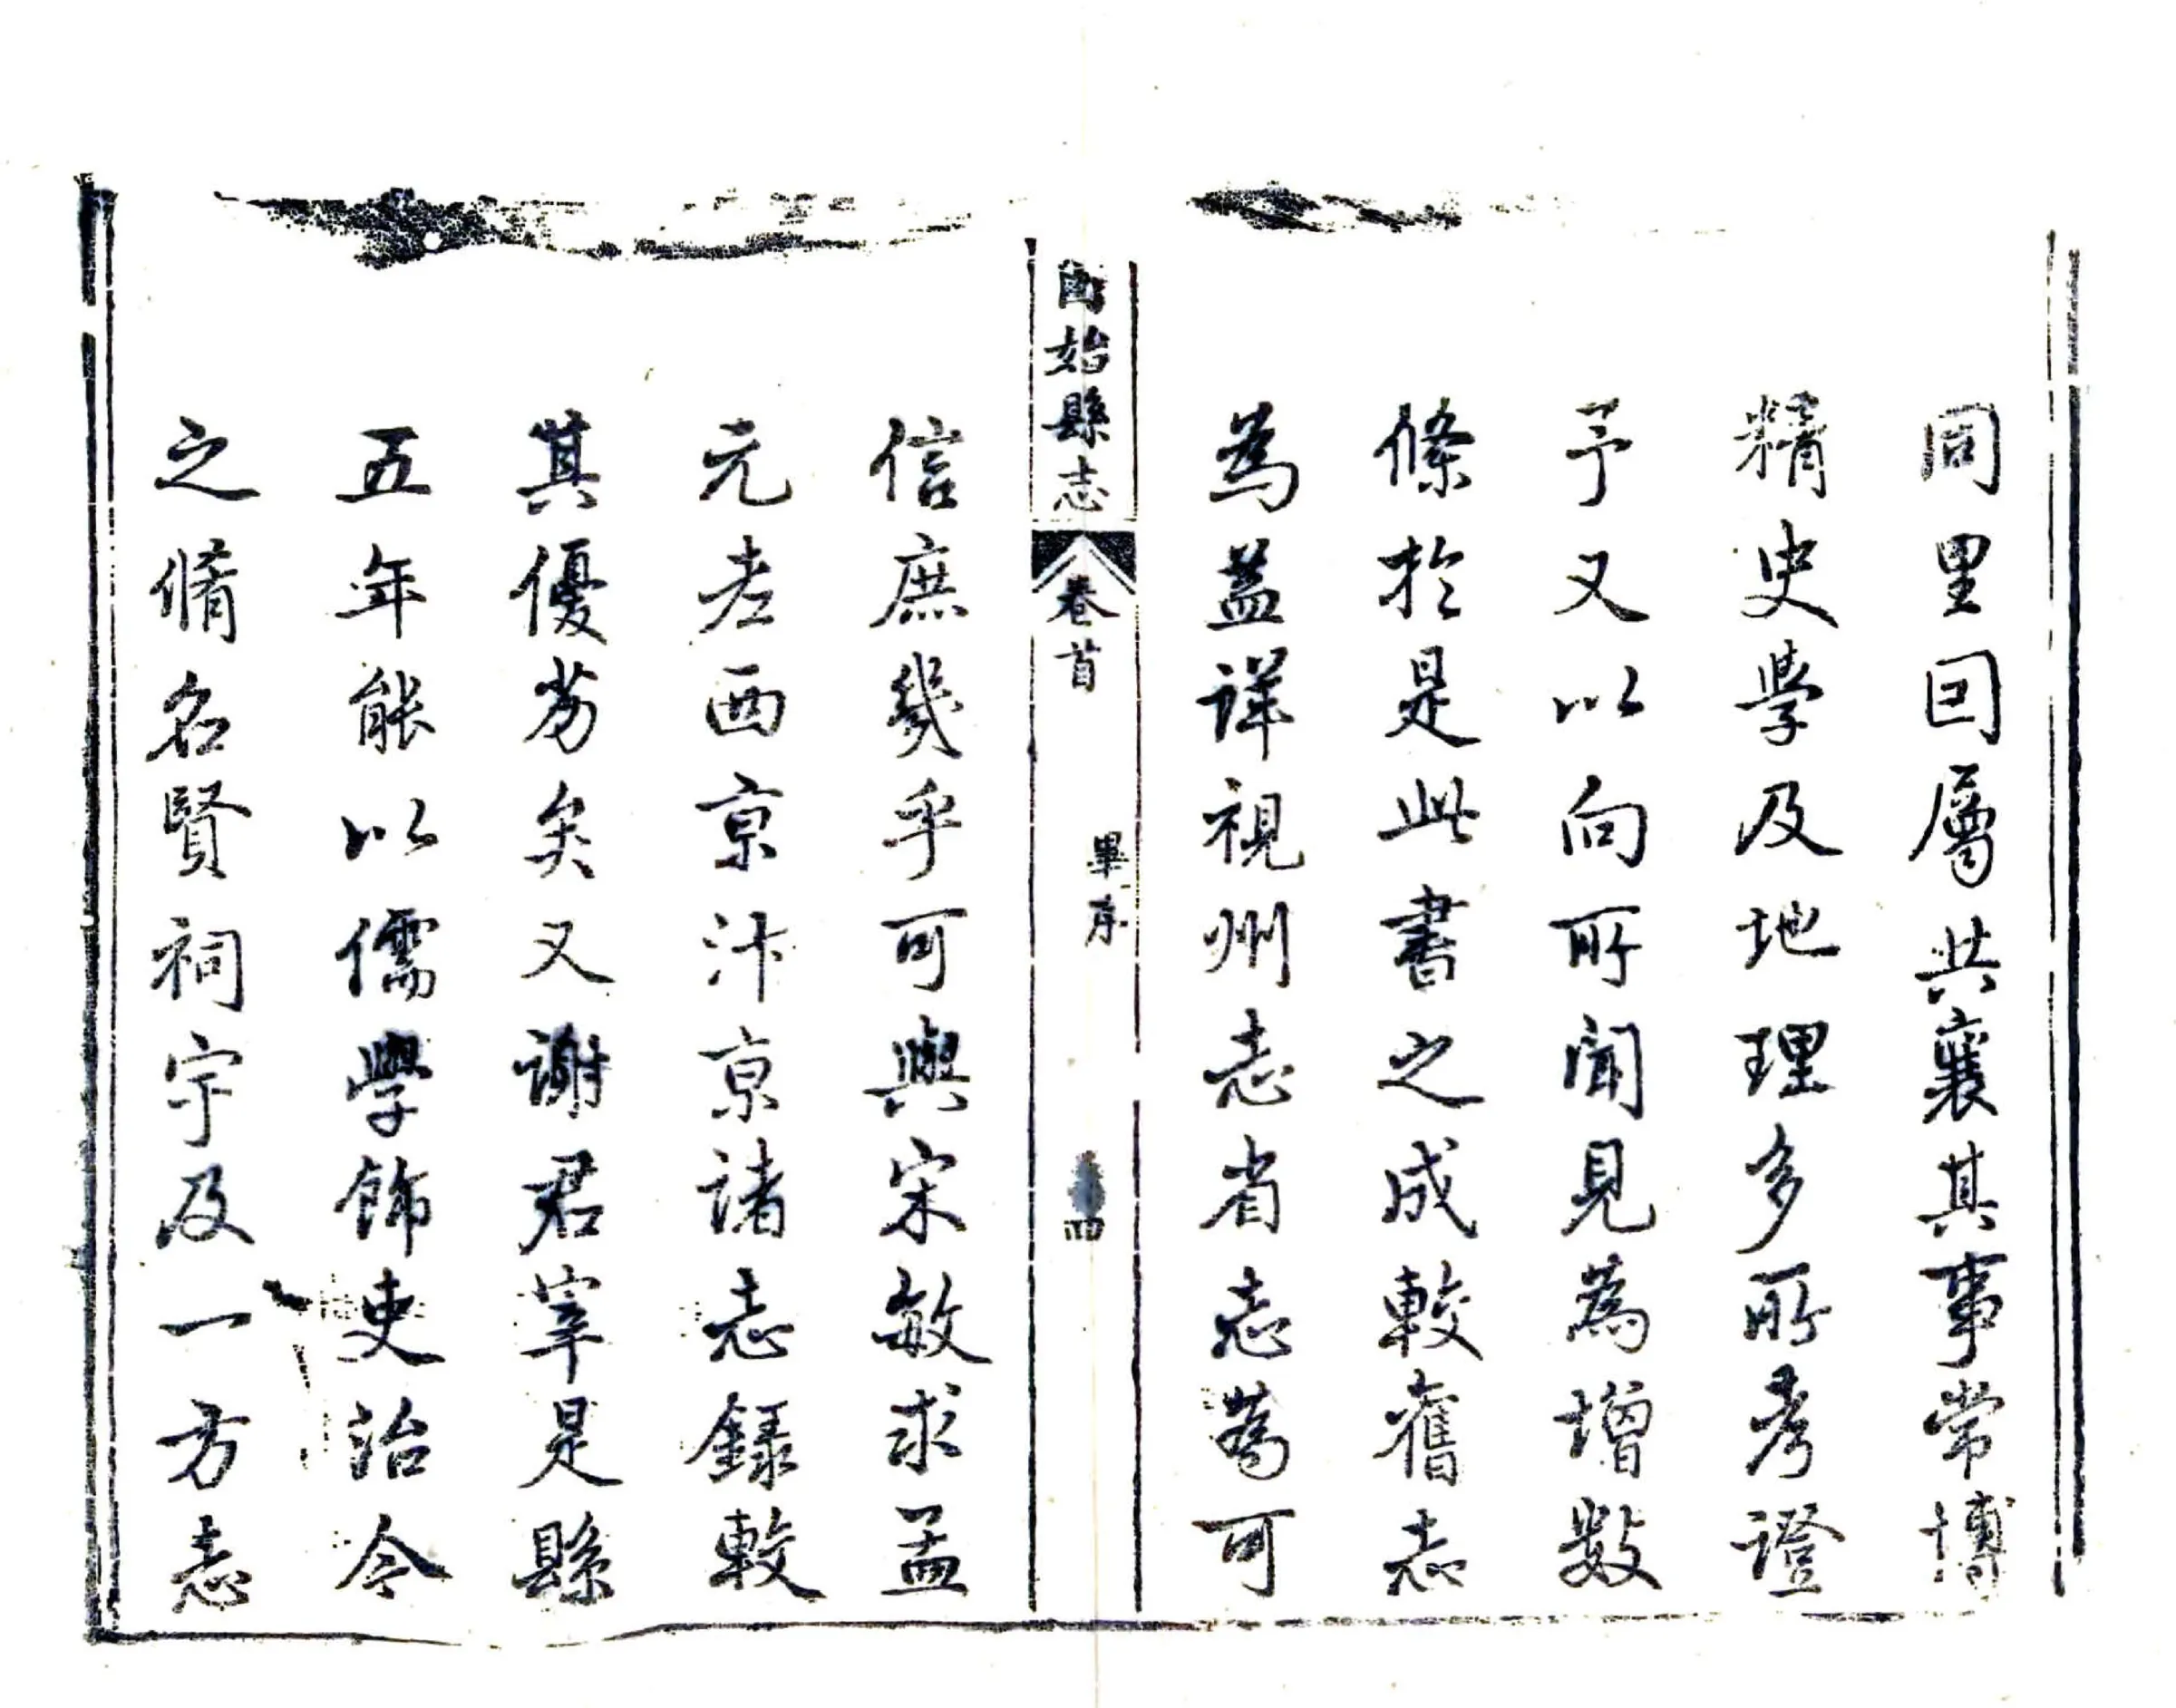 同里回屬共襄其事常博
精史學及地理多所考證
予又以向所聞見為增數
條於是此書之成較舊志
為益詳視州志省志為可
固始縣志 卷首 畢序 四
信庶幾乎可與宋敏求孟
元老西京汴京諸志錄較
其優劣矣又謝君宰是縣
五年能以儒學飾吏治今
之脩名賢祠宇及一方志